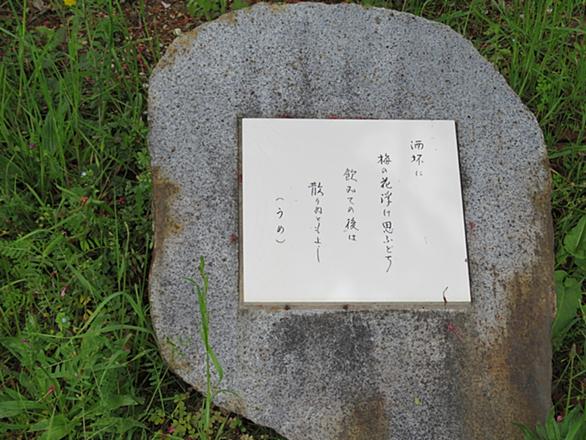 酒坏に
梅の花浮け思ふどち
飲みての後は
散りぬともよし
（うめ）